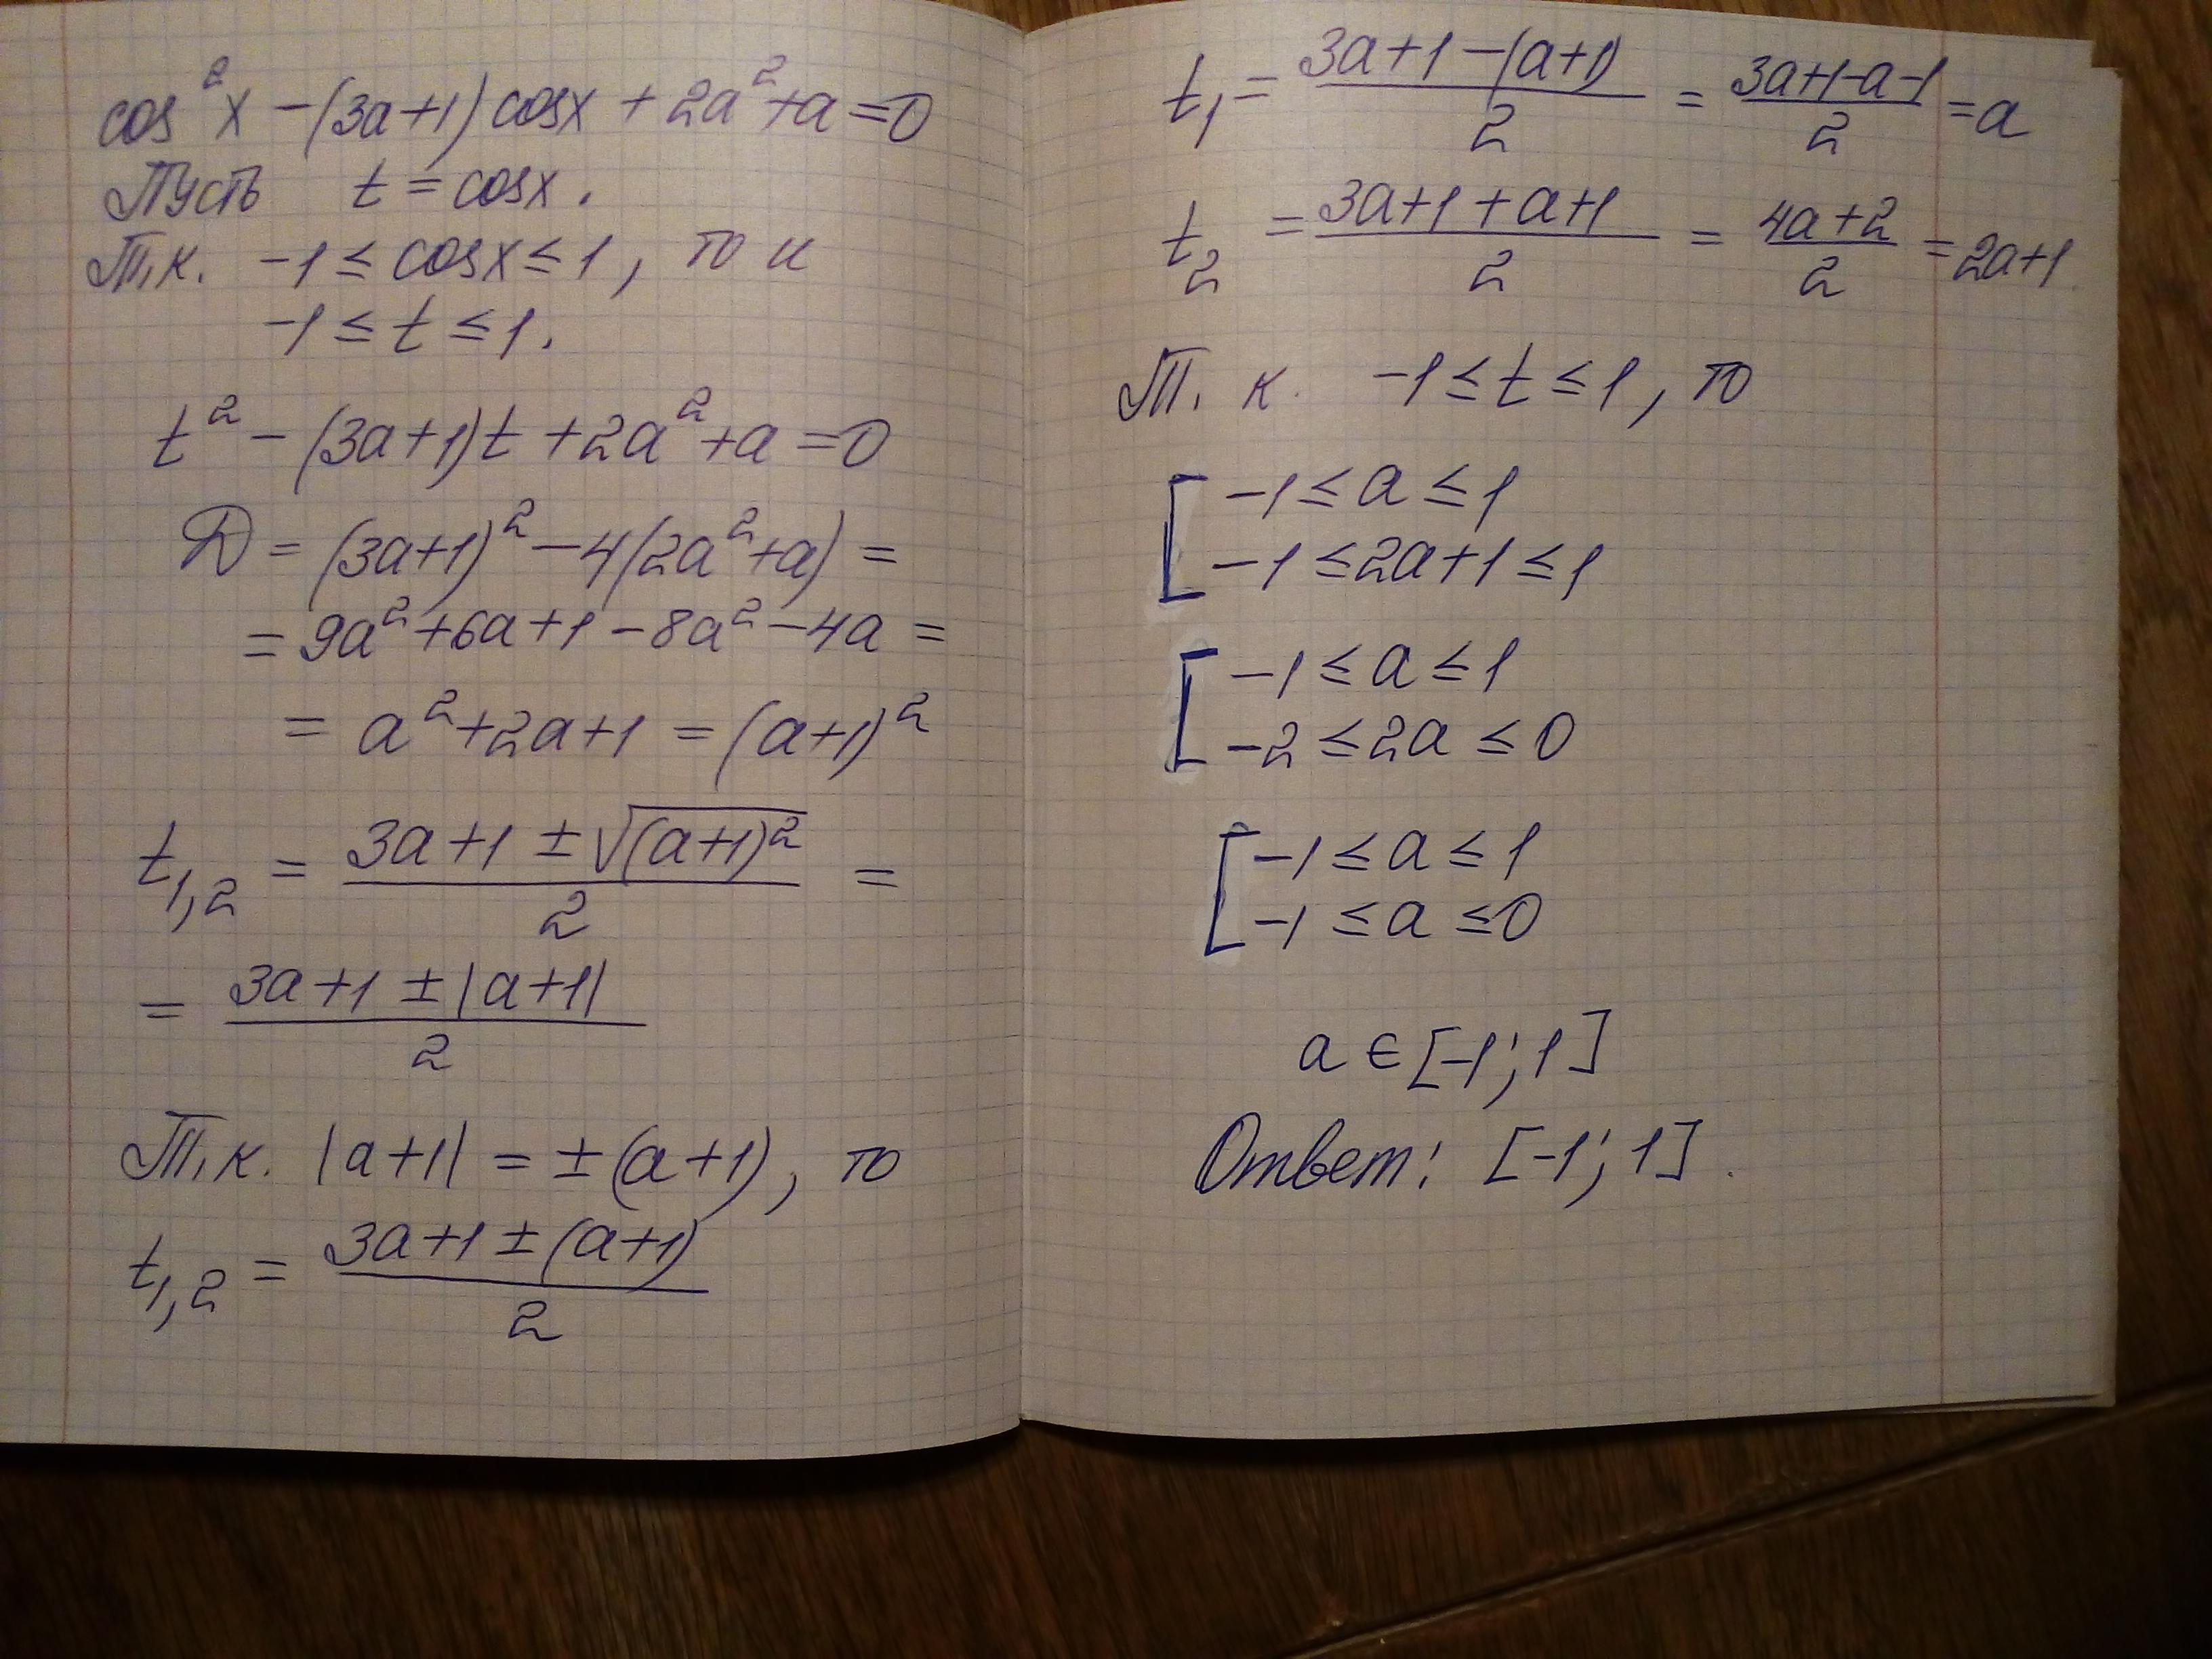 cos²x − (3a+1)cosx + 2a²+a = 0
Пусть t = cosx.
Т.к. −1 ≤ cosx ≤ 1, то и
−1 ≤ t ≤ 1.
t² − (3a+1)t + 2a²+a = 0
D = (3a+1)² − 4(2a²+a) =
= 9a² + 6a + 1 − 8a² − 4a =
= a² + 2a + 1 = (a+1)²
t₁,₂ = (3a+1 ± √(a+1)²)/2 =
= (3a+1 ± |a+1|)/2
Т.к. |a+1| = ±(a+1), то
t₁,₂ = (3a+1 ± (a+1))/2
t₁ = (3a+1−(a+1))/2 = (3a+1−a−1)/2 = a
t₂ = (3a+1+a+1)/2 = (4a+2)/2 = 2a+1
Т.к. −1 ≤ t ≤ 1, то
[ −1 ≤ a ≤ 1
−1 ≤ 2a+1 ≤ 1
[ −1 ≤ a ≤ 1
−2 ≤ 2a ≤ 0
[ −1 ≤ a ≤ 1
−1 ≤ a ≤ 0
a ∈ [−1; 1]
Ответ: [−1; 1].